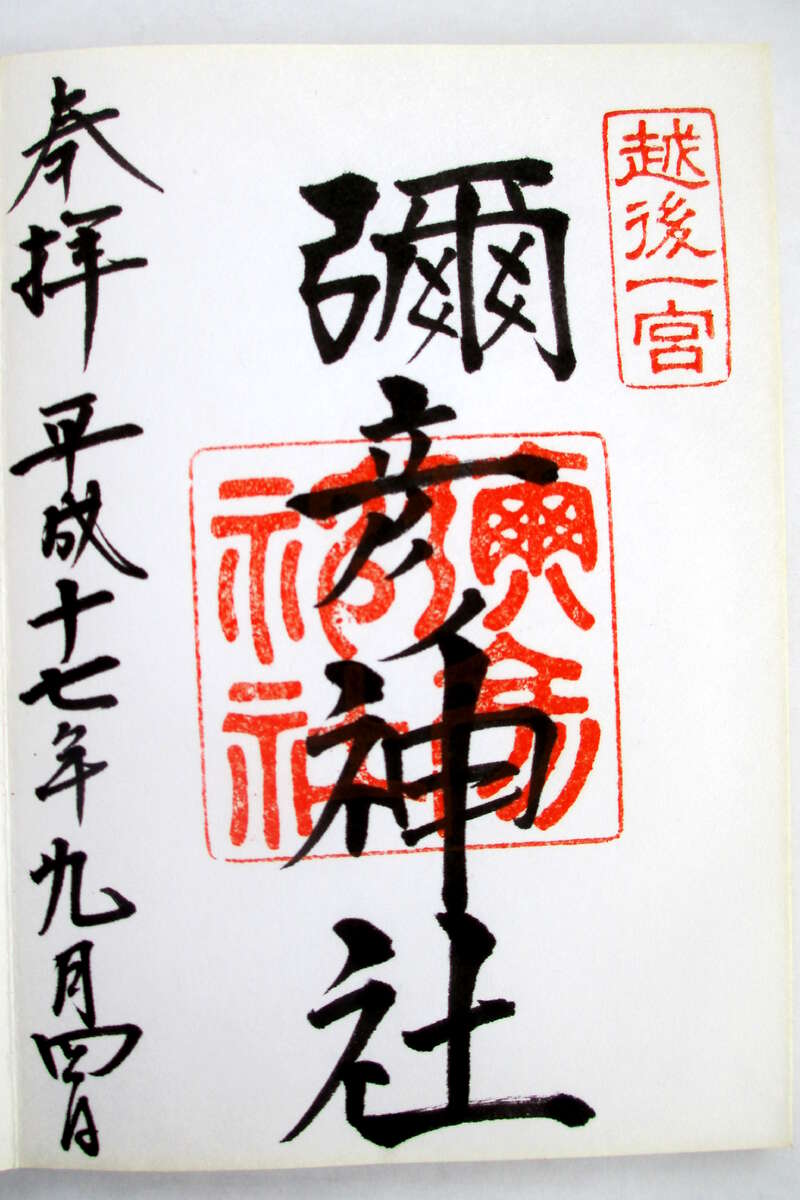 越後一宮
彌彦神社
彌彦神社
奉拝 平成十七年九月四日